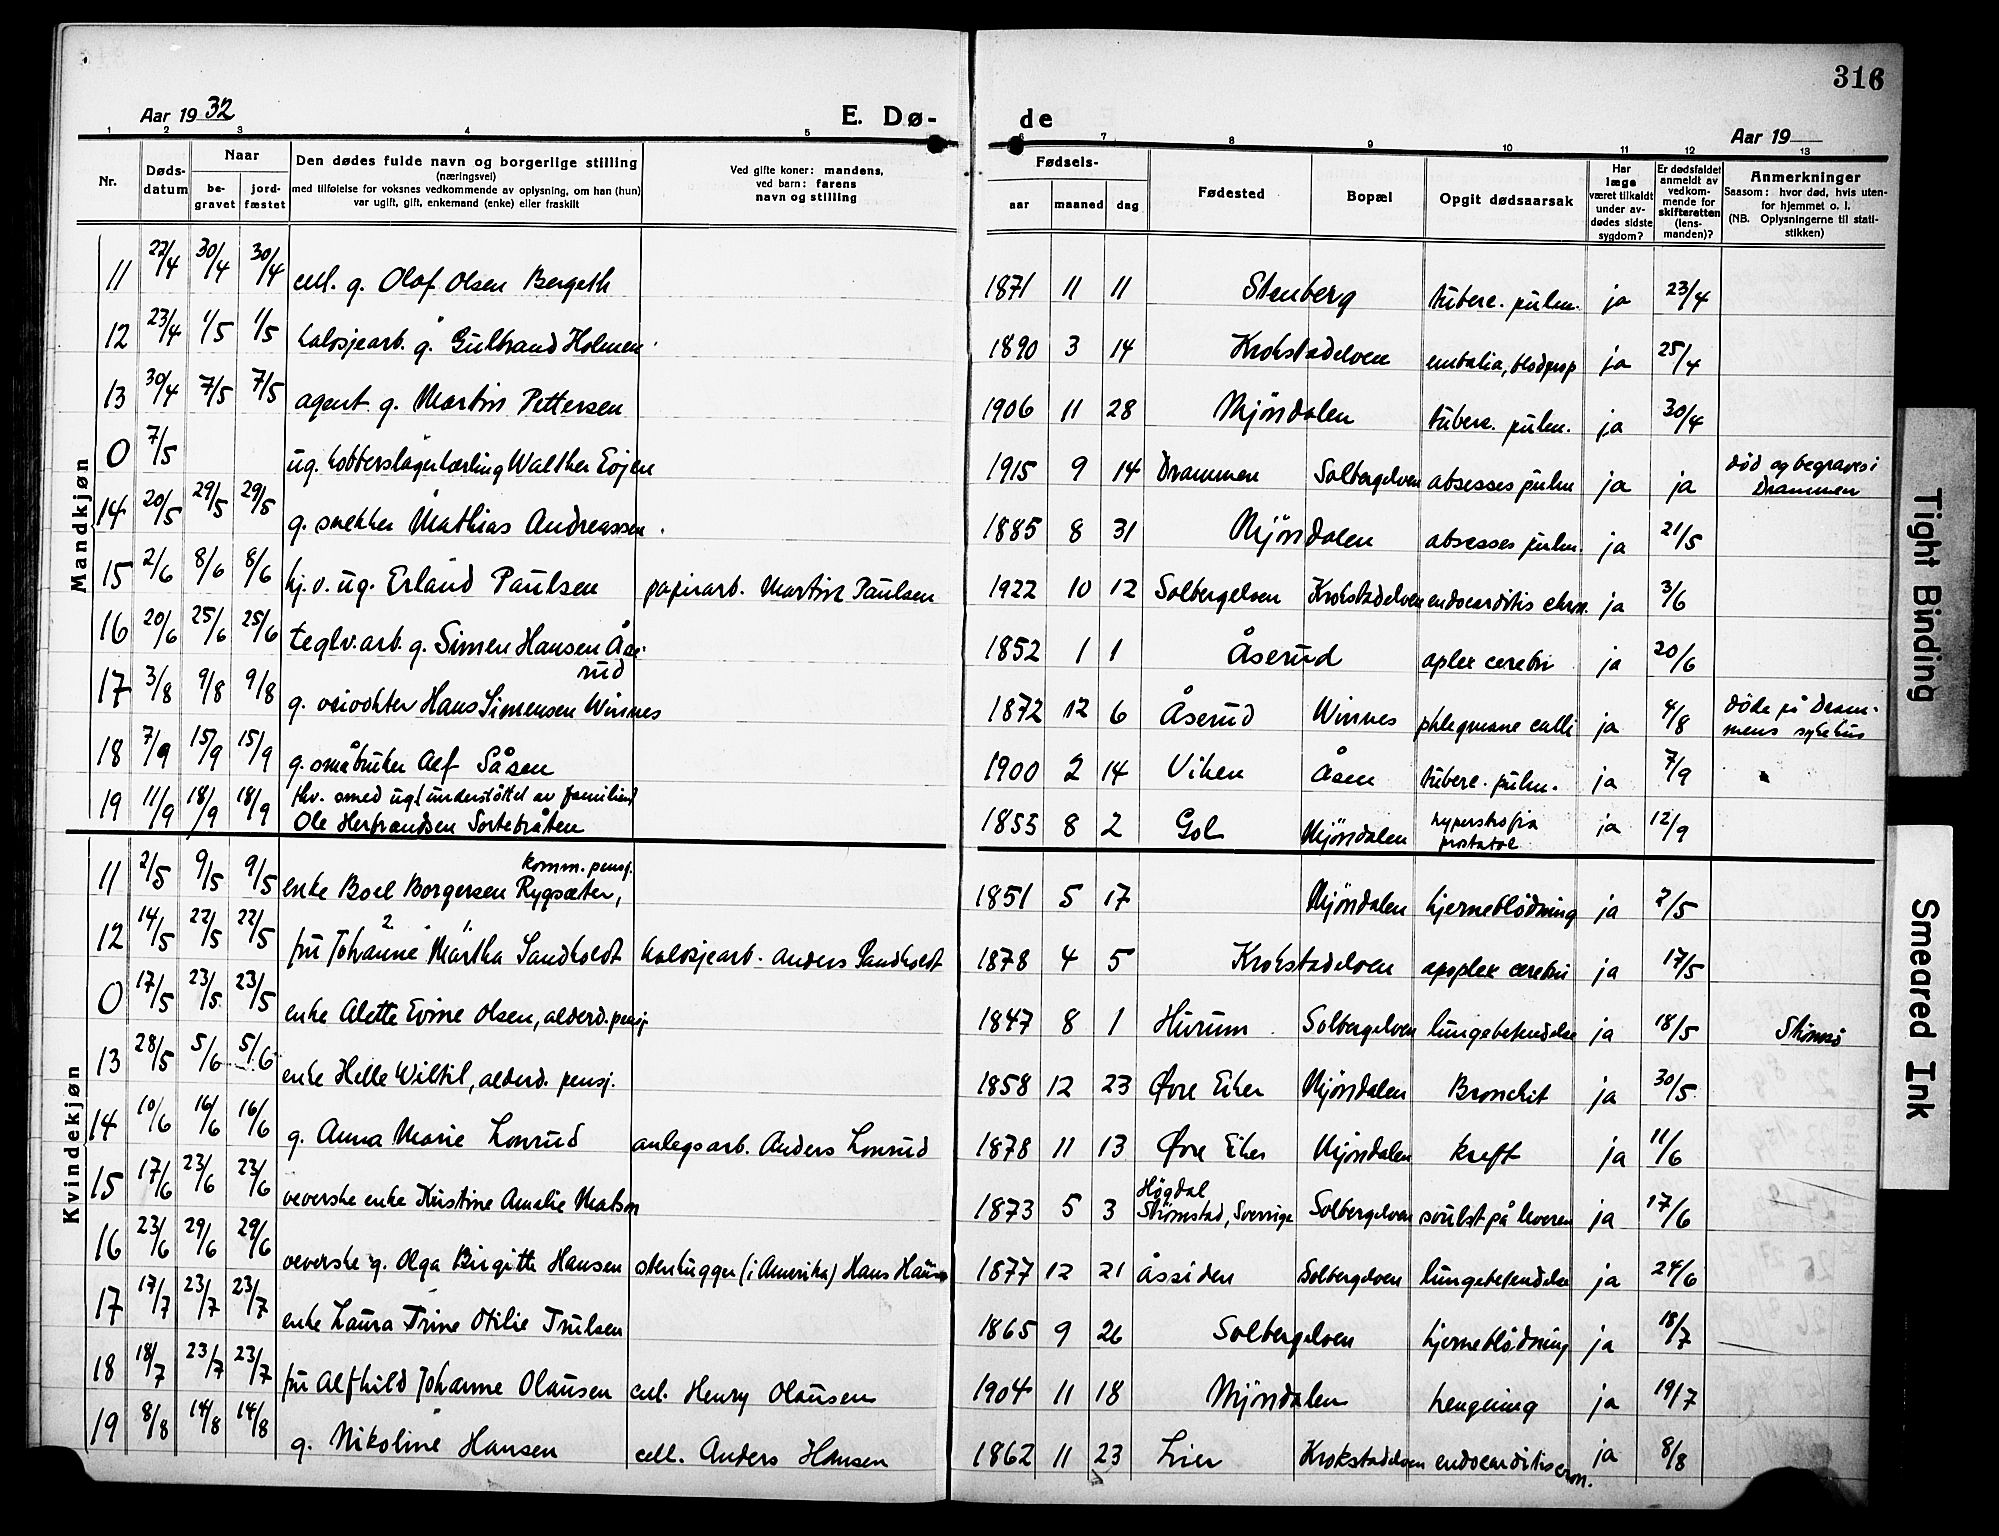 316
Aar 1932
E. Dø-
de
Aar 19
1 2 3 4 5 6 7 8 9 10 11 12 13
Nr.
Døds-
datum
Naar
be-
gravet
jord-
fæstet
Den dødes fulde navn og borgerlige stilling
(næringsvei)
med tilføielse for voksnes vedkommende av oplysning, om han (hun)
var ugift, gift, enkemand (enke) eller fraskilt
Ved gifte koner: mandens,
ved barn: farens
navn og stilling
Fødsels-
aar maaned dag
Fødested
Bopæl
Opgit dødsaarsak
Har
læge
været tilkaldt
under av-
dødes sidste
sygdom?
Er dødsfaldet
anmeldt av
vedkom-
mende for
skifteretten
(lens-
manden)?
Anmerkninger
Saasom: hvor død, hvis uten-
for hjemmet o. l.
(NB. Oplysningerne til stati-
stikken)
Mandkjøn
11 27/4 30/4 30/4 cell. g. Olaf Olsen Bergeth 1871 11 11 Stenberg tuberc. pulm. ja 23/4
12 23/4 1/5 1/5 kalosjearb. g. Gulbrand Holmen 1890 3 14 Krokstadelven embolia, blodprop ja 25/4
13 30/4 7/5 7/5 agent g. Martin Pettersen 1906 11 28 Mjöndalen tuberc. pulm. ja 30/4
0 7/5 ug. kobberslagerlærling Walther 1915 9 14 Drammen Solbergelven absesses pulm ja ja død og begraves i
Drammen
14 20/5 29/5 29/5 g. snekker Mathias Andreassen 1885 8 31 Mjöndalen absesses pulm. ja 21/5
15 2/6 8/6 8/6 hj. v. ug. Erland Paulsen papirarb. Martin Paulsen 1922 10 12 Solbergelven Krokstadelven endocarditis chron. ja 3/6
16 20/6 25/6 25/6 teglv.arb. g. Simen Hansen Åse-
rud 1852 1 1 Åserud aplex cerebri ja 20/6
17 3/8 9/8 9/8 g. veivokter Hans Simensen Winnes 1872 12 6 Åserud Winnes phlegmone colli ja 4/8 døde på Dram-
mens sykehus
18 7/9 15/9 15/9 g. småbruker Alf Såsen 1900 2 14 Viken Åsen tuberc. pulm. ja 7/9
19 11/9 18/9 18/9 fhv. smed ugt understøttet av familien
Ole Herbrandsen Sortebråten 1853 8 2 Gol Mjöndalen hyperstrofia
prostatae ja 12/9
Kvindekjøn
11 2/5 9/5 9/5 enke Boel Borgersen Rygsæter, komm. pensj. 1851 5 17 Mjöndalen hjerneblödning ja 2/5
12 14/5 22/5 22/5 fru Johanne Märtha Sandholdt kalosjearb. Anders Sandholdt 1878 4 5 Krokstadelven apoplex cerebri ja 17/5
0 17/5 23/5 23/5 enke Alette Evine Olsen, alderd. pensj 1847 8 1 Hurum Solbergelven lungebetendelse ja 18/5 Strømsø
13 28/5 5/6 5/6 enke Helle Wiltil, alderd. pensj. 1858 12 23 Övre Eiker Mjöndalen Bronchit ja 30/5
14 10/6 16/6 16/6 g. Anna Marie Lonrud anlegsarb. Anders Lonrud 1878 11 13 Övre Eiker Mjöndalen kreft ja 11/6
15 17/6 23/6 23/6 veverske enke Kristine Amalie Matson 1873 5 3 Högdal
Strömstad, Sverrige Solbergelven svulst på leveren ja 17/6
16 23/6 29/6 29/6 veverske g. Olga Birgitte Hansen stenhugger (i Amerika) Hans Hansen 1877 12 21 Åssiden Solbergelven lungebetendelse ja 24/6
17 17/7 23/7 23/7 enke Laura Trine Otilie Trulsen 1865 9 26 Solbergelven hjerneblödning ja 18/7
18 18/7 23/7 23/7 fru Alfhild Johanne Olausen cel. Henry Olausen 1904 11 18 Mjöndalen hengning ja 19/7
19 8/8 14/8 14/8 g. Nikoline Hansen cell. Anders Hansen 1862 11 23 Lier Krokstadelven endocarditis cron. ja 8/8
Tight Binding
Smeared Ink